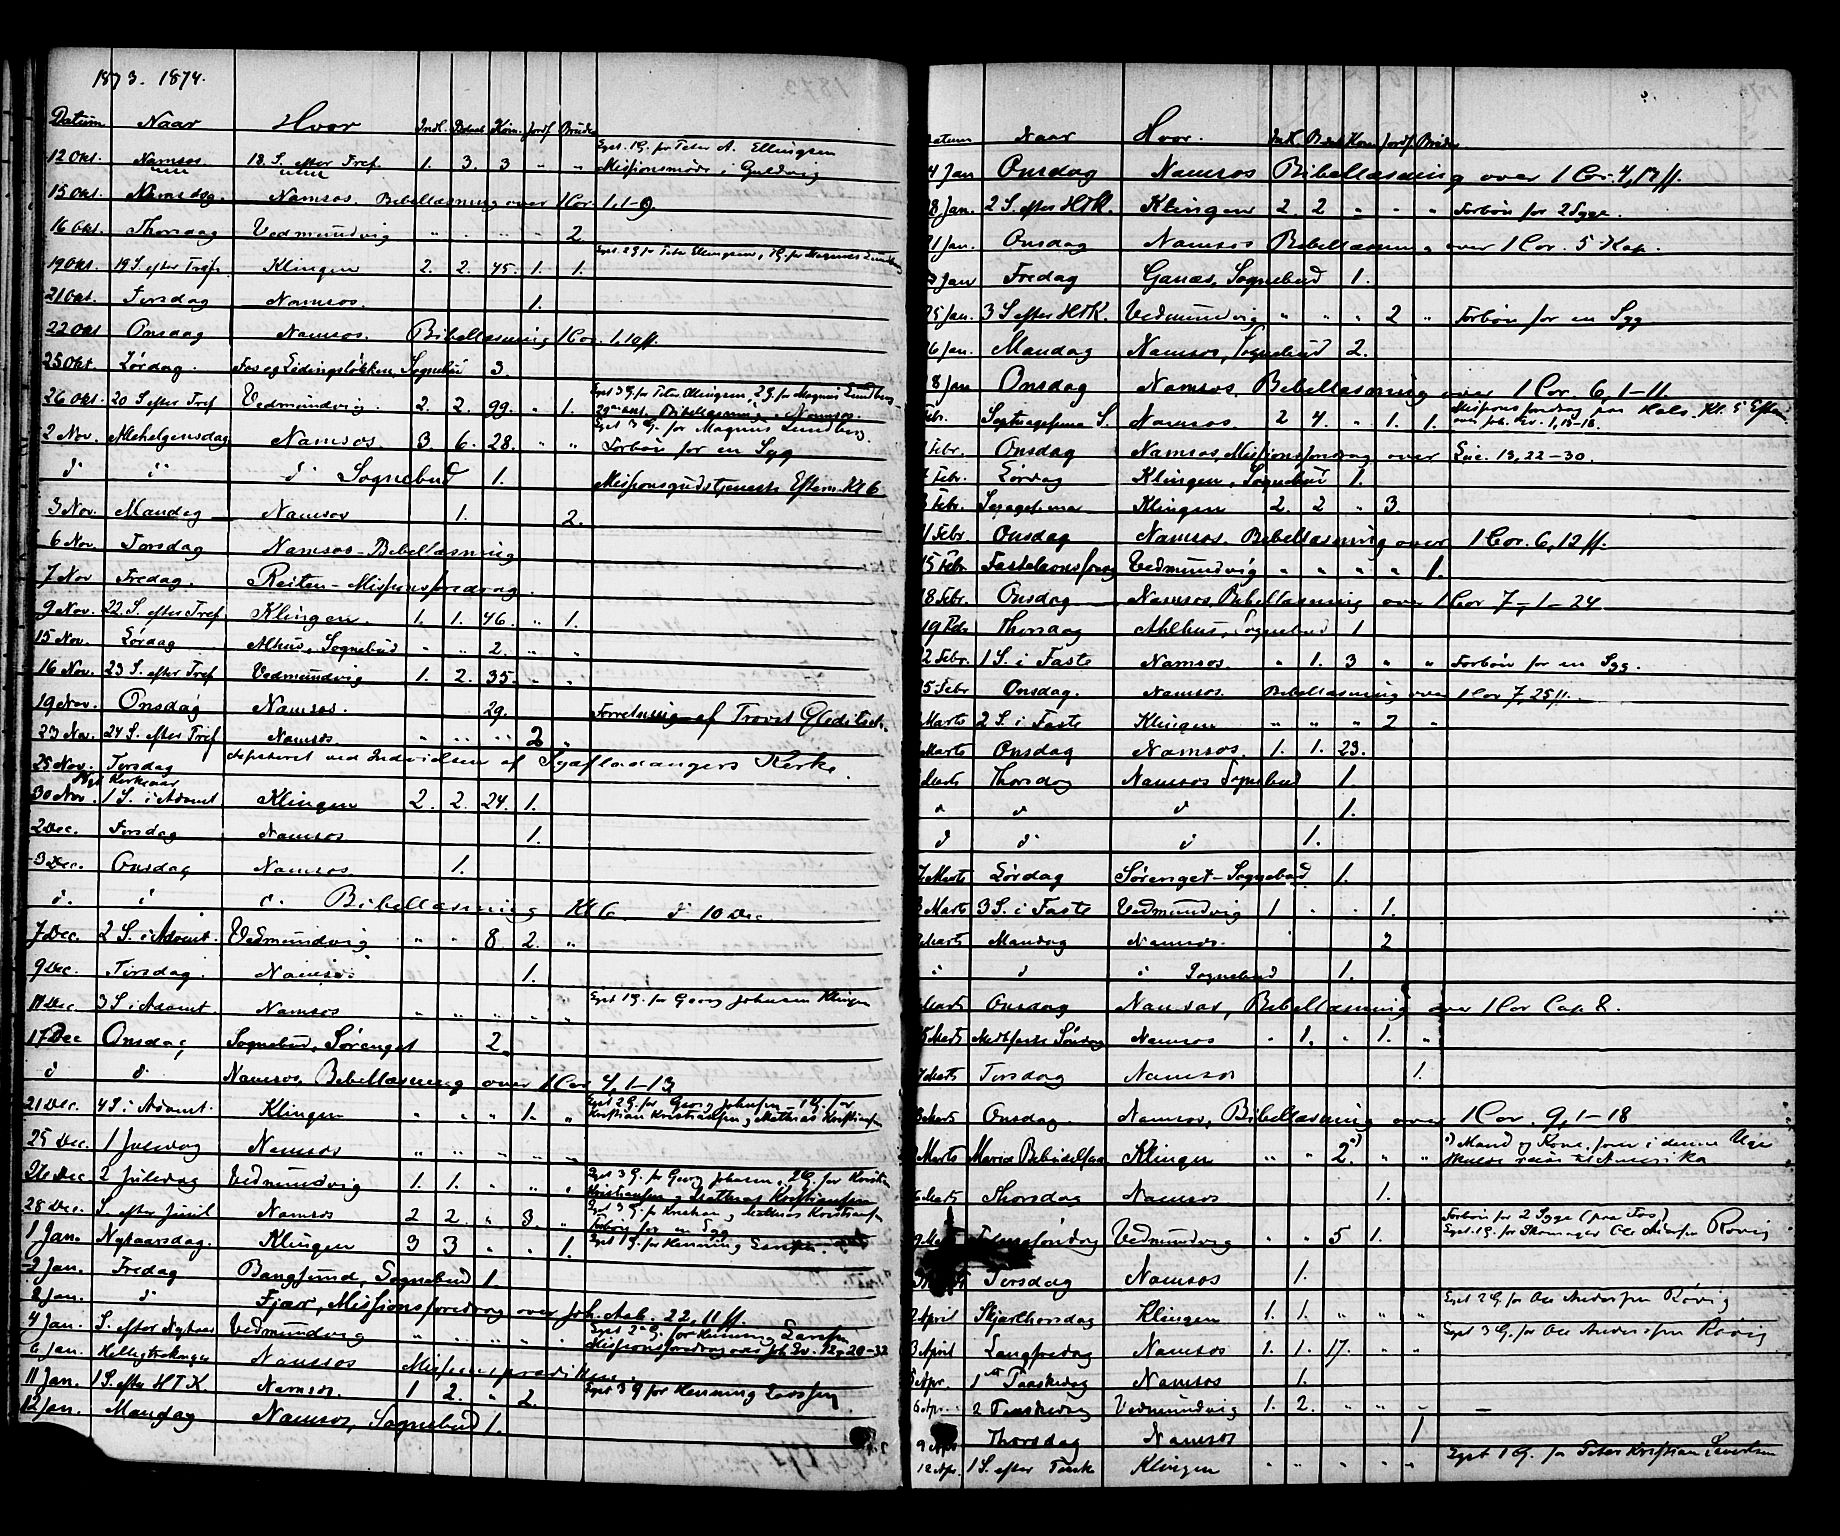 1873. 1874.
Datum Naar Hvor Indl. Dobest Kom. Jordf Brudev
12 Okt. Namsos 18. S. efter Tref. 1. 3. 3 " " Eyst. 1 G. for Peter A. Ellingsen
Missionsmöde i Guldvig
15 Okt. Namsos. Bibellæsning over 1 Cor. 1, 1-9
16 Okt. Thorsdag Vedmundvig " " " " 2.
19 Okt. 19 S. efter Tref. Klingen 2. 2. 45. 1. 1. 2 G. for Peter Ellingsen, 1 G. for Magnus Lundberg
21 Okt. Tirsdag Namsos. 1.
22 Okt Onsdag Namsos. Bibellæsning 1 Cor. 1, 10 ff.
25 Okt. Lördag. Sognebud 3.
26 Okt. 20 S efter Tref Vedmundvig. 2. 2. 99. " 1. 3 G. for Peter Ellingsen, 2 G. for Magnus Lundberg
29de Okt. Bibellæsning i Namsos.
2 Nov. Allehelgensdag Namsos 3. 6. 28. " " 3 G. for Magnus Lundberg.
Forbön for en Syg
d d d Sognebud 1. Missionsgudstjeneste Efterm. Kl 6
3 Nov. Mandag Namsos 1. 2.
6 Nov. Torsdag Namsos - Bibellæsning
7 Nov Fredag. Reiten - Missionsforedrag.
9 Nov. 22. S. efter Tref. Klingen. 1. 1. 46. " 1.
15 Nov. Lördag Alhus, Sognebud " " 2. " "
16 Nov. 23 S. efter Tref Vedmundvig 1. 2. 35. " "
19 Nov. Onsdag Namsos. 29. Forretning af Provst Gleditsch.
23 Nov. 24 S. efter Tref Namsos. " " " 2 "
25 Nov. Tirsdag Assisteret ved Indvielsen af Kirke.
Nyt Kirkeaar
30 Nov. 1 S. i Advent Klingen 2. 2. 24. 1.
2 Dec. Tirsdag Namsos 1.
3 Dec. Onsdag Namsos. 1.
d. d d. Bibellæsning Kl 6. d 10 Dec.
7 Dec. 2 S. i Advent. Vedmundvig " " 8 2. "
9 Dec. Tirsdag. Namsos 1.
3 S. i Advent. Namsos " " " " " 1 G. for Georg Johnsen Klingen
17 Dec Onsdag Sognebud, Sörenget 2.
d d Namsos, Bibellæsning over 1 Cor 4, 1-13
21 Dec. 4 S. i Advent. Klingen " " " 1. " 2 G. for Georg Johnsen - 1 G. for
Kristian Kristiansen og Mathias Kristiansen
25 Dec. 1 Juledag Namsos " " " " "
26 Dec 2 Juledag Vedmundvig 1. 1. " " " 3 G. for Georg Johnsen, 2 G. for Kristian
Kristiansen og Mathias Kristiansen
28 Dec. S. efter Juul Namsos 2 2. " 3. " 3 G. for Kristian og Mathias Kristiansen
Forbön for en Syg
1 Jan. Nytaarsdag. Klingen 3 3 " " 1. 1 G. for Henning Larssen.
2 Jan. Fredag Bangsund, Sognebud 1.
2 Jan. d Fjær, Missionsforedrag over Joh. Aab. 22, 11 ff.
4 Jan. S. efter Nytaar Vedmundvig " " " " " 2 G. for Henning Larssen
Missionsforedrag over Joh. Ev. 12, 20-32
6 Jan. Helligtrekonger Namsos Missionsprædiken.
11 Jan. 1 S. efter H.T.K. Namsos. 1 2. " 2. 3 G for Henning Larssen
12 Jan. Mandag Namsos, Sognebud 1.
Datum Naar Hvor. Indl. Dobest Kom Jordf. Brudev
4 Jan Onsdag Namsos Bibellæsning over 1 Cor. 4,
8 Jan. 2 S. efter HTK. Klingen 2. 2 " " " Forbön for 2 Syge.
21 Jan. Onsdag Namsos Bibellæsning over 1 Cor. 5 Kap.
Jan Fredag Ganæs, Sognebud 1.
25 Jan. 3 S efter HTK. Vedmundvig " " " 2 " Forbön for en Syg
26 Jan. Mandag Namsos, Sognebud 2.
8 Jan Onsdag Namsos. Bibellæsning over 1 Cor. 6, 1-11.
Febr. Septuagesima S. Namsos. 2 4. " 1. 1. Missionsforedrag paa Hals. Kl. 5 Efterm
over Joh. Ev. 1, 15-18.
Febr. Onsdag Namsos, Missionsforedrag over Luc. 13, 22-30.
7 Febr. Lördag Klingen, Sognebud 1.
8 Febr. Sexagesima Klingen 2. 2 " 3.
11 Febr. Onsdag Namsos. Bibellæsning over 1 Cor. 6, 12 ff.
15 Febr. Fastelavnssöndag Vedmundvig " " " " 1.
18 Febr. Onsdag Namsos, Bibellæsning over 1 Cor 7, 1-24
19 Febr Thorsdag Ahlhus, Sognebud 1
22 Febr. 1 S. i Faste Namsos " 1. 3 " " Forbön for en Syg.
25 Febr Onsdag. Namsos. Bibellæsning over 1 Cor 7, 25 ff.
Marts 2 S. i Faste Klingen " " " 2 "
Marts Onsdag Namsos. 1. 1. 23.
Marts Thorsdag Namsos Sognebud 1.
d d d 1.
d d d 1.
7 Marts Lördag Sörenget - Sognebud 1.
8 Marts 3 S. i Faste Vedmundvig 1 " " 1.
9 Marts Mandag Namsos. 2
d d d Sognebud 1.
Marts Onsdag Namsos, Bibellæsning over 1 Cor Cap. 8.
15 Marts Midtfaste Söndag Namsos " 1. " 1. "
Marts Tirsdag Namsos 1.
18 Marts Onsdag. Namsos, Bibellæsning over 1 Cor. 9, 1-18
Marts Mariæ Bebudelsesdag Klingen " " 2. " " Mand og Kone, som i denne Uge
skulde reise til Amerika
26 Marts Thorsdag Namsos 1.
Vedmundvig " " 5 1. Forbön for 2 Syge (paa Fos)
1 G. for Skomager Ole Andersen Rövig
Tirsdag Namsos 1.
2 April Skjærthorsdag Klingen 1. 1. " " " 2 G. for Ole Andersen Rövig
3 April Langfredag Namsos 1. 1. 17. " " 3 G. for Ole Andersen Rövig
5 Apr. 1ste Paaskedag Namsos 1.
6 Apr. 2 Paaskedag Vedmundvig 1. 2. " " "
9 Apr Thorsdag Namsos 1
12 Apr. 1 S. efter Paaske Klingen " " " " " 1 G. for Peter Kristian Sivertsen